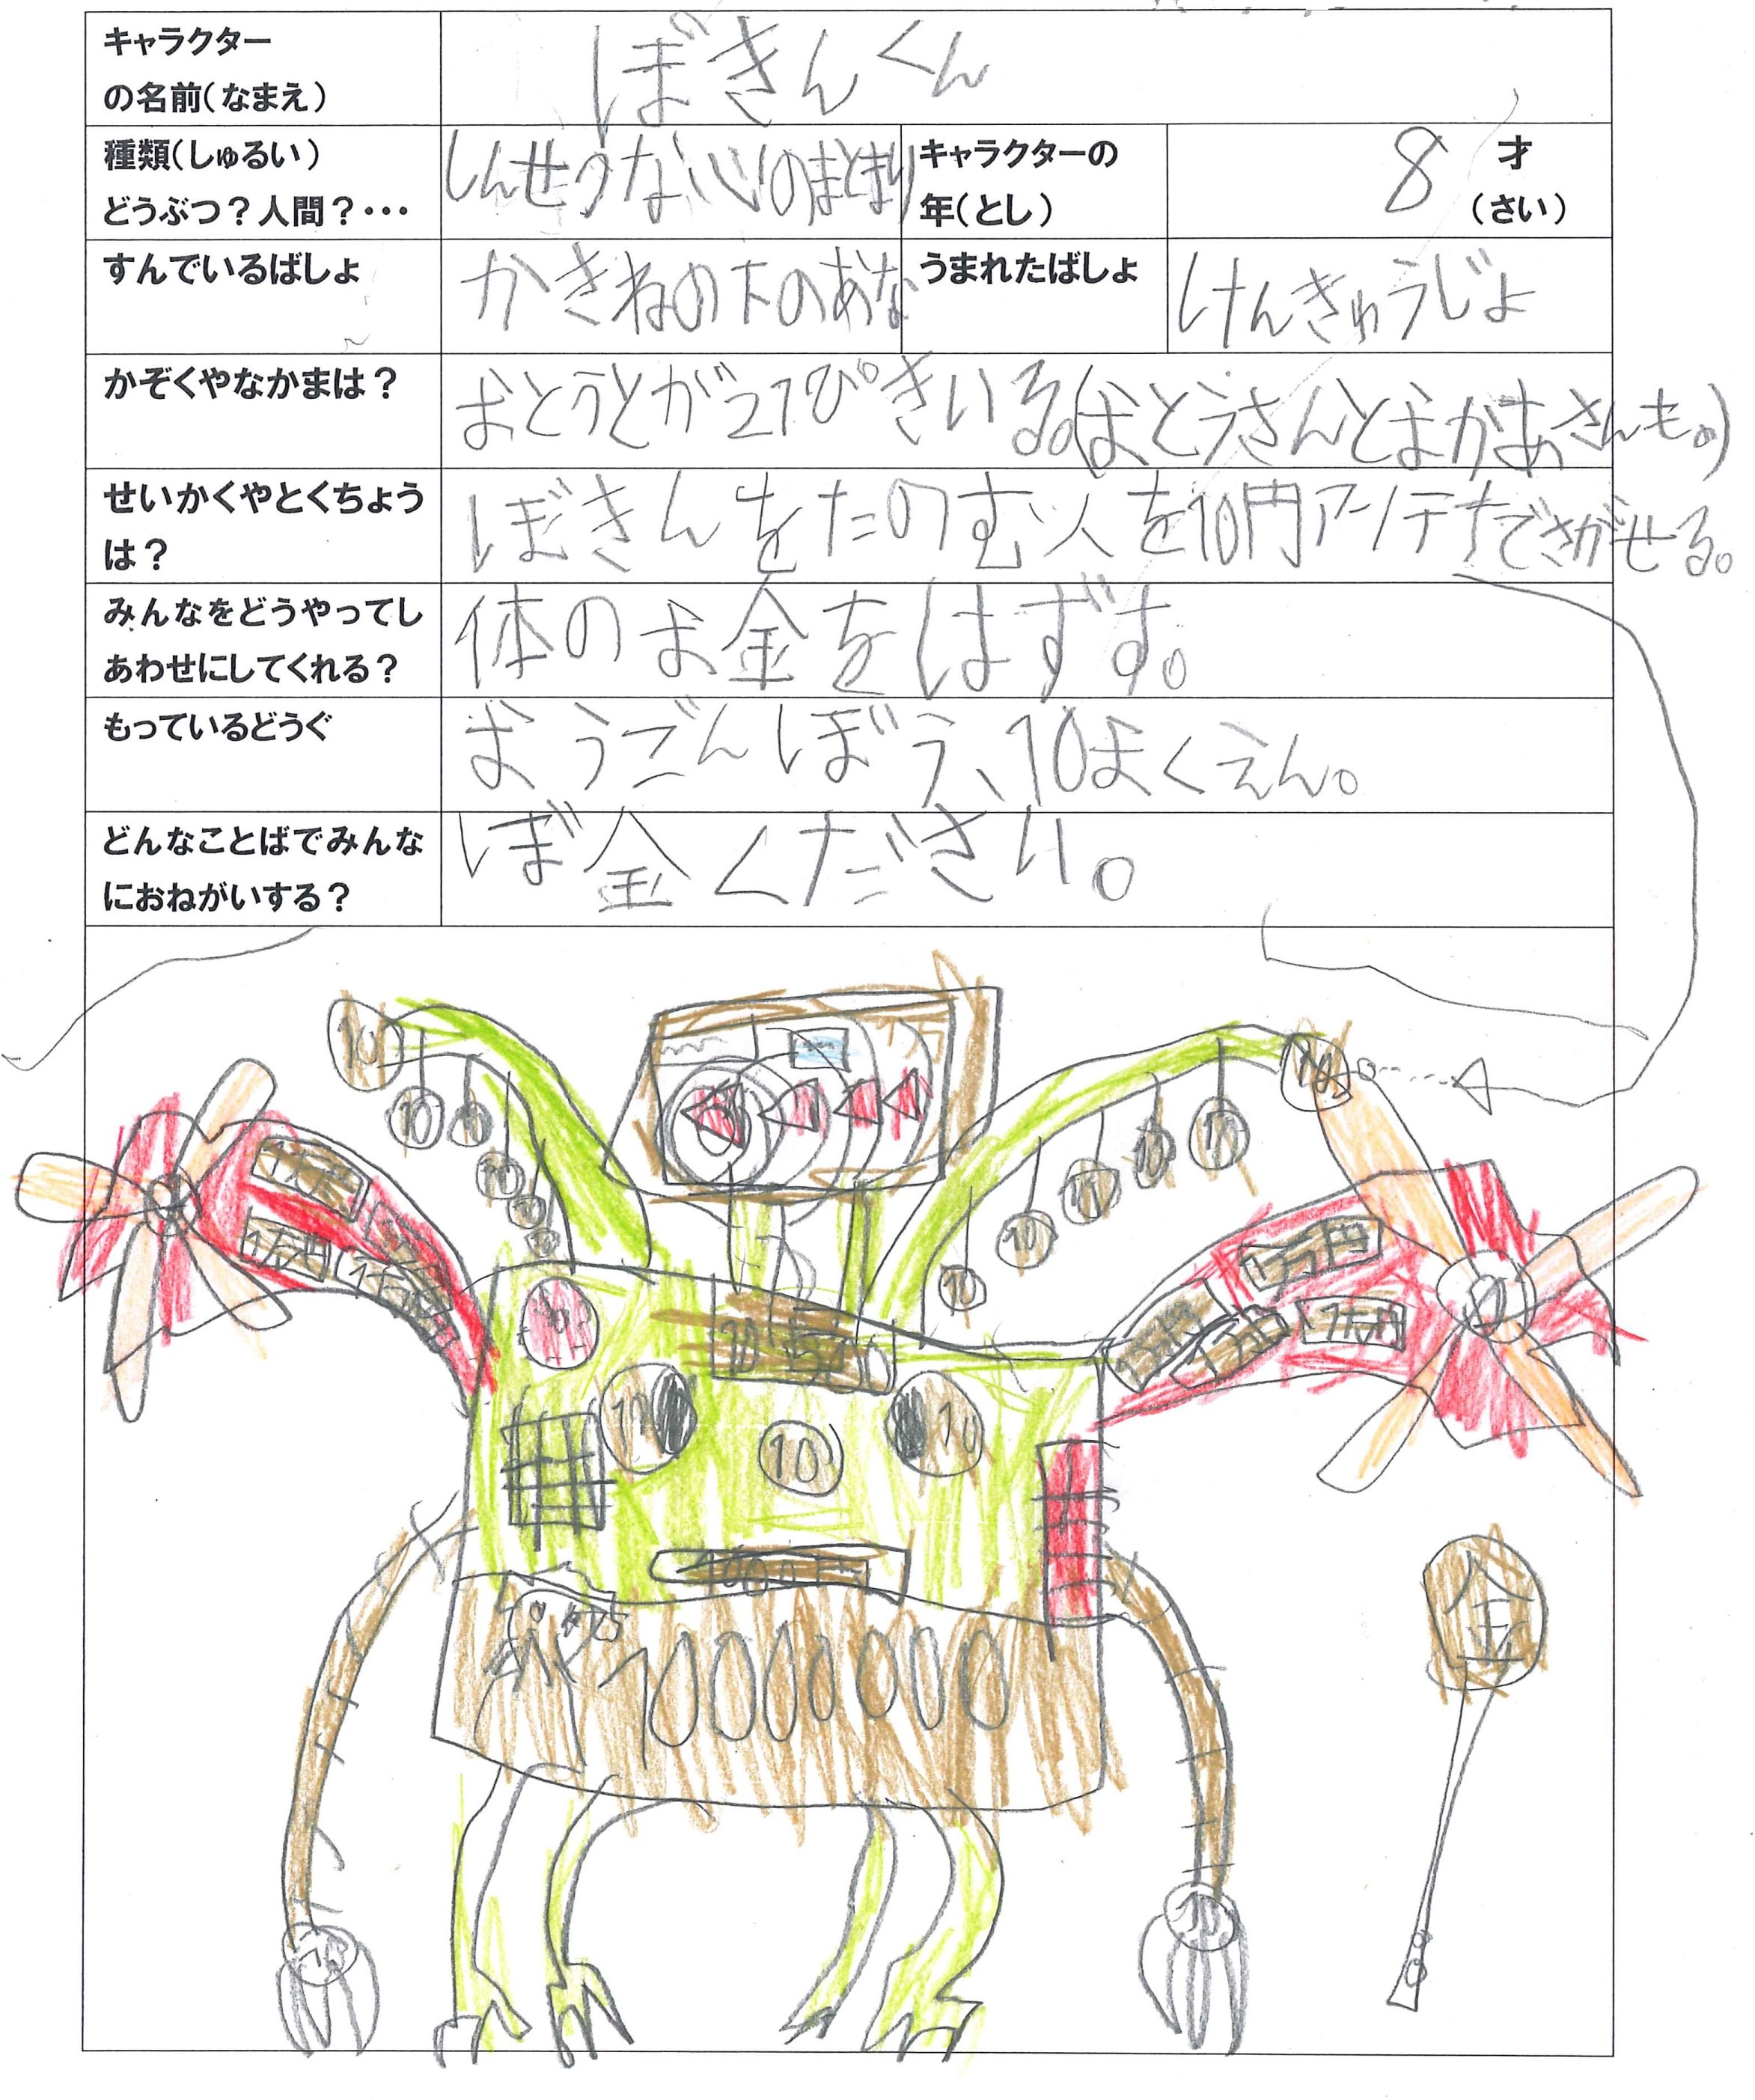 キャラクター
の名前(なまえ)
ぼきんくん
種類(しゅるい)
どうぶつ?人間?・・・
しんせつな心のまとまり
キャラクターの
年(とし)
8 才
(さい)
すんでいるばしょ
かきねの下のあな
うまれたばしょ
けんきゅうじょ
かぞくやなかまは?
おとうとが21ぴきいる。(おとうさんとおかあさんも。)
せいかくやとくちょう
は?
ぼきんをたのむ人を10円アンテナでさがせる。
みんなをどうやってし
あわせにしてくれる?
体のお金をはずす。
もっているどうぐ
おうごんぼう、10おくえん。
どんなことばでみんな
におねがいする?
ぼ金ください。
10
10
10
10
10
10
10
10
10
10
10
1万円
1千円
1千円
10
10
10
10000000
金
10